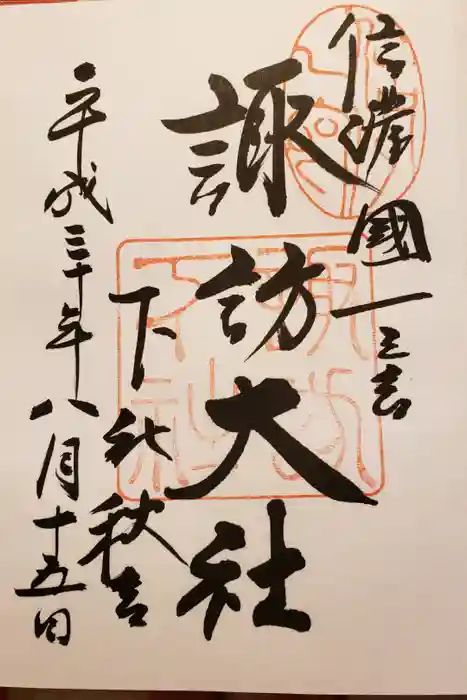 信濃國一之宮
諏訪大社
下社秋宮
平成三十年八月十五日